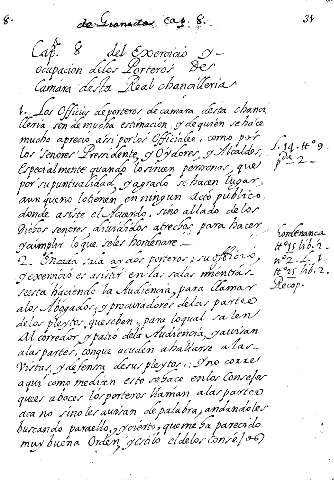 8. de Granada cap. 8. 31
Cap. 8 del Exercicio y
ocupacion delos Porteros Des
Camara desta Real chancilleria
1. Los Officios de porteros de camara desta chanci
lleria, son de mucha estimacion, y de quien se hace
mucho aprecio assi por los Officiales, como por
los señores Presidente, y Oydores, y Alcaldes,
Especialmente quando lo siruen personas, que
por su puntualidad, y agrado se hacen lugar,
aunque no lo tienen en ningun acto publico
donde asiste el Acuerdo, sino allado de los
dichos señores diuididos atrechos, para hacer
y cumplir lo que se les
2. para porteros; su officio,
y exercicio es asistir en las salas mientras
se esta haciendo la Audiencia, para llamar
a los Abogados, y procuradores de las partes
de los pleytos, que se ben, para lo qual salen
al corredor, y patio de la Audiencia, y auisan
alas partes, conque acuden a hallarse a las
Vistas, y defensa de sus pleytos. Y no corre
aqui como medran esto se hace en los Consejos
que es a boces los porteros llaman a las partes
aca no sino les auisan de palabra, andandoles
buscando para ello, y cierto, que me ha parecido
muy buena Orden, y estilo el delos Consejos
L. 14. tt.º 9
2.
Hordenanca
tt.º 15 lib. 2.
nº 2. L. 1.
tt.º 25 lib. 2.
Recop.